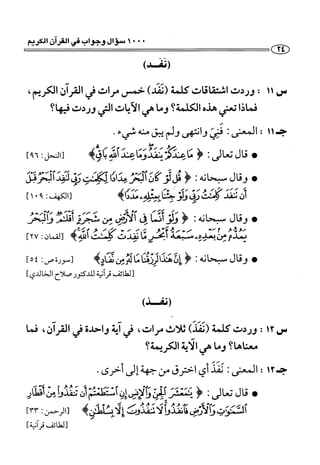 ١٠٠٠ سؤال وجواب في القرآن الكريم
٢٤
(نَفَـد)
س ١١ : وردت اشتقاقات كلمة (نَفَد) خمس مرات في القرآن الكريم،
فماذا تعني هذه الكلمة؟ وما هي الآيات التي وردت فيها؟
جـ١١ : المعنى : فَنِيَ وانتهى ولم يبق منه شيء.
● قال تعالى : ﴿ مَا عِندَكُمْ يَنفَدُ وَمَا عِندَ اللَّهِ بَاقٍ ﴾ [النحل : ٩٦]
● وقال سبحانه : ﴿ قُل لَّوْ كَانَ الْبَحْرُ مِدَادًا لِّكَلِمَاتِ رَبِّي لَنَفِدَ الْبَحْرُ قَبْلَ
أَن تَنفَدَ كَلِمَاتُ رَبِّي وَلَوْ جِئْنَا بِمِثْلِهِ مَدَدًا ﴾ [الكهف : ١٠٩]
● وقال سبحانه : ﴿ وَلَوْ أَنَّمَا فِي الْأَرْضِ مِن شَجَرَةٍ أَقْلَامٌ وَالْبَحْرُ
يَمُدُّهُ مِن بَعْدِهِ سَبْعَةُ أَبْحُرٍ مَّا نَفِدَتْ كَلِمَاتُ اللَّهِ ﴾ [لقمان : ٢٧]
● وقال سبحانه : ﴿ إِنَّ هَٰذَا لَرِزْقُنَا مَا لَهُ مِن نَّفَادٍ ﴾ [سورة ص : ٥٤]
[لطائف قرآنية للدكتور صلاح الخالدي]
(نفــذ)
س ١٢ : وردت كلمة (نَفَذَ) ثلاث مرات، في آية واحدة في القرآن، فما
معناها؟ وما هي الآية الكريمة؟
جـ١٢ : المعنى : نَفَذَ أي اخترق من جهة إلى أخرى.
● قال تعالى : ﴿ يَا مَعْشَرَ الْجِنِّ وَالْإِنسِ إِنِ اسْتَطَعْتُمْ أَن تَنفُذُوا مِنْ أَقْطَارِ
السَّمَاوَاتِ وَالْأَرْضِ فَانفُذُوا لَا تَنفُذُونَ إِلَّا بِسُلْطَانٍ ﴾ [الرحمن : ٣٣]
[لطائف قرآنية]